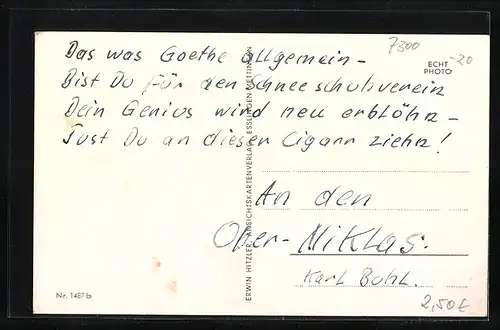 Das was Goethe allgemein -
Bist Du für den Schneeschuhverein
Dein Genius wird neu erblöhn -
Tust Du an diesen Cigarrn ziehn!
7300
-20
ECHT
PHOTO
An den
Ober-Miklas.
Karl Bohl.
ERWIN HITZLER, ANSICHTSKARTENVERLAG, ESSLINGEN-METTINGEN
Nr. 1487b
2,50€